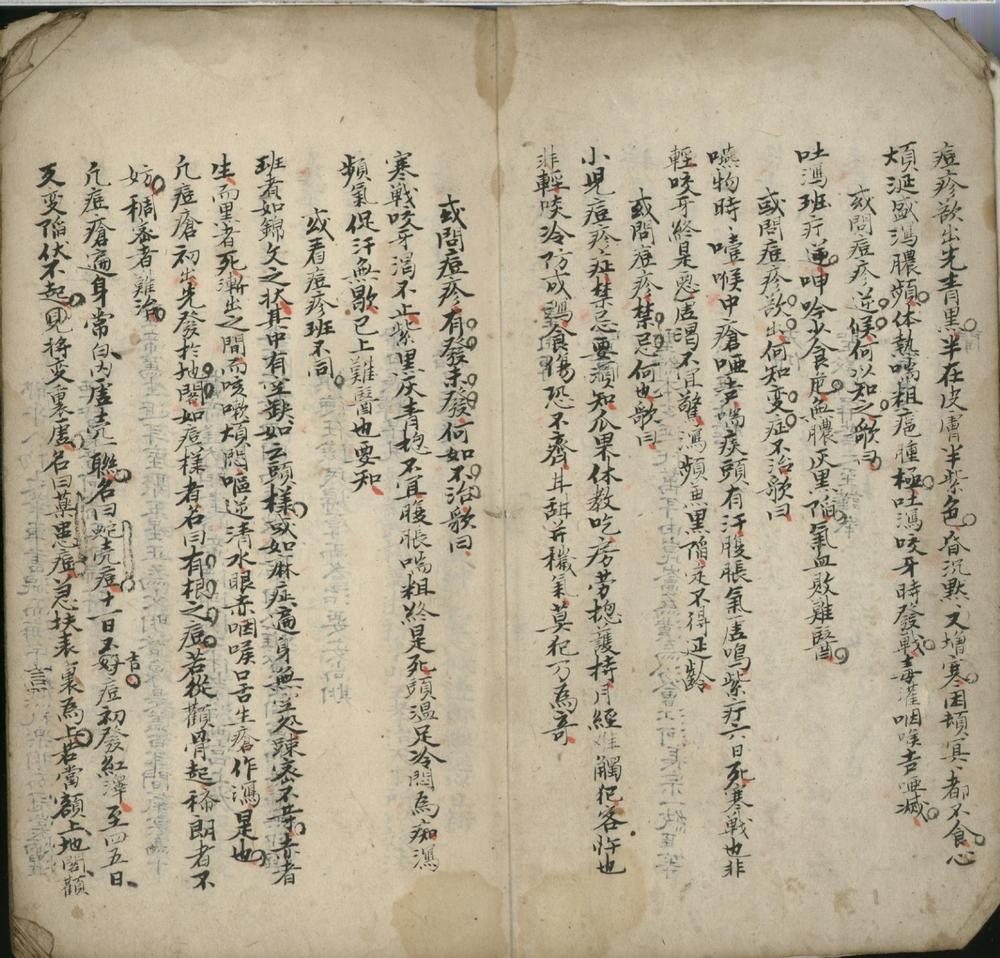 痘疹欲出先青黑半在皮膚半紫色昏沉默又增寒困頓冥都不食心
煩涎盛瀉膿頻体熱喘粗疤腫極吐瀉咬牙時發戰毒灌咽喉声啞滅
或問痘疹逆候何以知之歌曰
吐瀉班疔逆呻吟少食疤無膿灰黑陷氣血敗難醫
或問痘疹欲出何知变症不治歌曰
嚥物時嘻喉中瘡啞声喘疾頭有汗腹脹氣虛鳴紫疔六日死寒戰也非
輕咬牙終是惡虛渴不宜驚瀉頻血黑陷定不得延齡
或問痘疹禁忌何也歌曰
小児痘疹症禁忌要須知瓜果休教吃房劳揔護持月經难觸犯客忤也
非輕啖冷防成瀉食傷恐不齊耳甜并穢氣莫犯乃為奇
或問痘疹有發未發何如不治歌曰
寒戰咬牙渴不止紫黑灰青揔不宜腹脹喘粗終是死頭温足冷悶為痴瀉
頻氣促汗無歇已上難醫也要知
或看痘疹班不同
班者如錦文之狀其中有空缺如云頭樣或如麻症遍身無空処疎密不等赤者
生而黑者死漸出之間而咳嗽煩悶嘔逆清水眼赤咽喉口舌生瘡作瀉是也
凢痘瘡初出先發於地閣如痘樣者名曰有根之痘若從顴骨起稀朗者不
妨稠密者難治
凢痘瘡遍身常白內虛壳一聯名曰蛇壳痘十一日不好痘初發紅澤至四五日
吉
又变陷伏不起見將变裏虛名曰藥患痘急扶表裏為上若當額上地閣顴